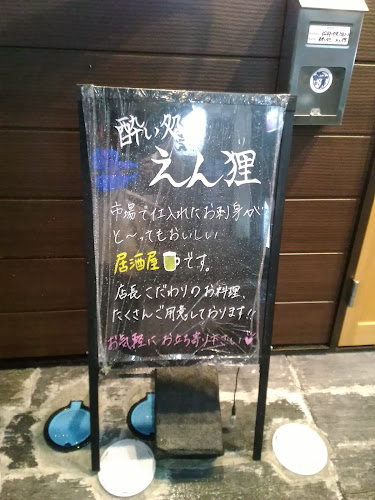 酔い処
えん狸
市場で仕入れたお刺身が
と〜ってもおいしい
居酒屋です。
店長こだわりのお料理、
たくさんご用意しております!!
お気軽にお立ち寄り下さい